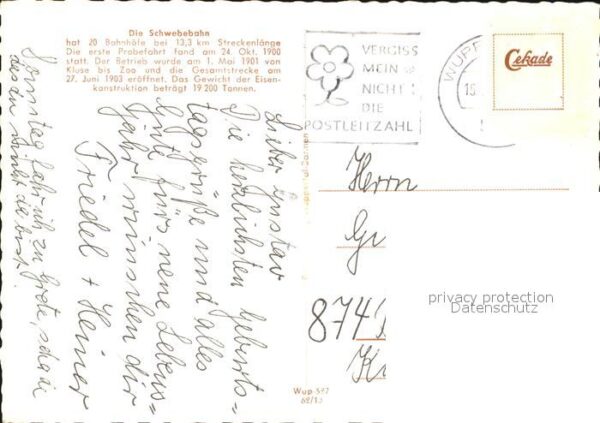 Die Schwebebahn
hat 20 Bahnhöfe bei 13,3 km Streckenlänge
Die erste Probefahrt fand am 24. Okt. 1900
statt. Der Betrieb wurde am 1. Mai 1901 von
Kluse bis Zoo und die Gesamtstrecke am
27. Juni 1903 eröffnet. Das Gewicht der Eisen-
konstruktion beträgt 19 200 Tonnen.
VERGISS
MEIN
NICHT
DIE
POSTLEITZAHL
WUPP
Cekade
Lieber Gustav
Die herzlichsten Geburts=
tagsgrüße und alles
Gute fürs neue Lebens=
jahr wünschen dir
Friedel + Heiner
Sonntag fahr ich zu Grete, schade
das du nicht da bist.
Herrn
Gu
874
K
privacy protection
Datenschutz
Wup 597